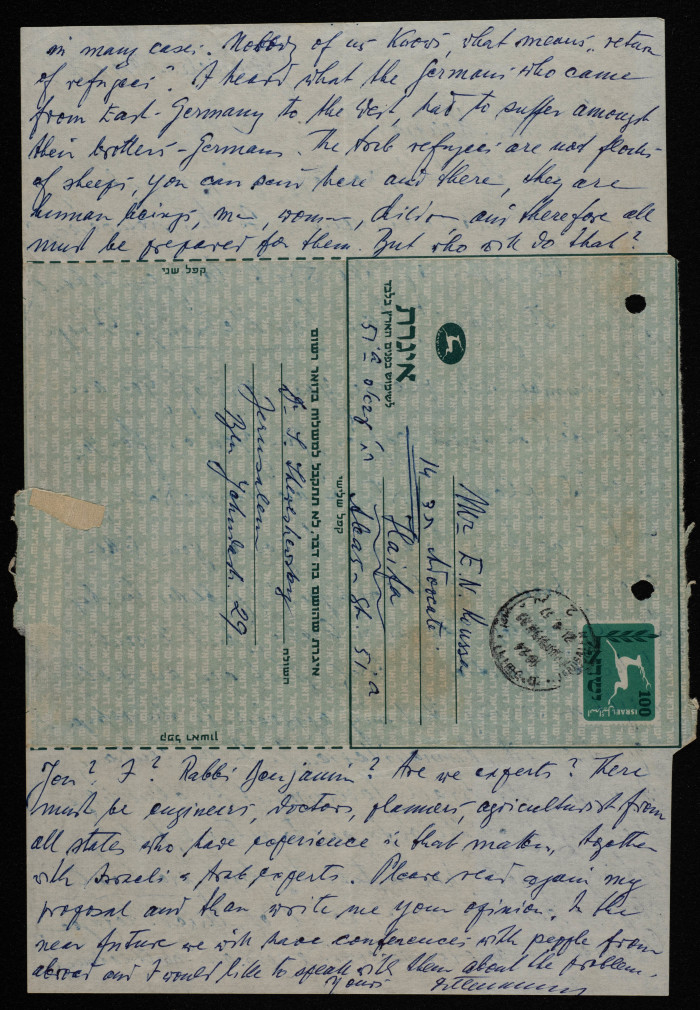 in many cases. Nobody of us knows, what means "return
of refugees". I heard what the Germans who came
from East-Germany to the West, had to suffer amongst
their brothers-Germans. The Arab refugees are not flocks
of sheeps, you can send here and there, they are
human beings, men, women, children and therefore all
must be prepared for them. But who will do that?
קפל שני
איגרת
לשימוש בפנים הארץ בלבד
Mr E. N. Mussa
Advocate
14
Haifa
Abas-St. 51/a
קפל שלישי
איגרת שהושם בה דבר, לא תתקבל למשלוח בדואר רשום
Dr. S. Shereshewsky
Jerusalem
Ben Jehudah 29
השולח
קפל ראשון
ISRAEL
100
You? I? Rabbi Benjamin? Are we experts? There
must be engineers, doctors, planners, agriculturist from
all states who have experience in that matter, together
with Israeli & Arab experts. Please read again my
proposal and then write me your opinion. In the
near future we will have conferences with people from
abroad and I would like to speak with them about the problem.
Yours